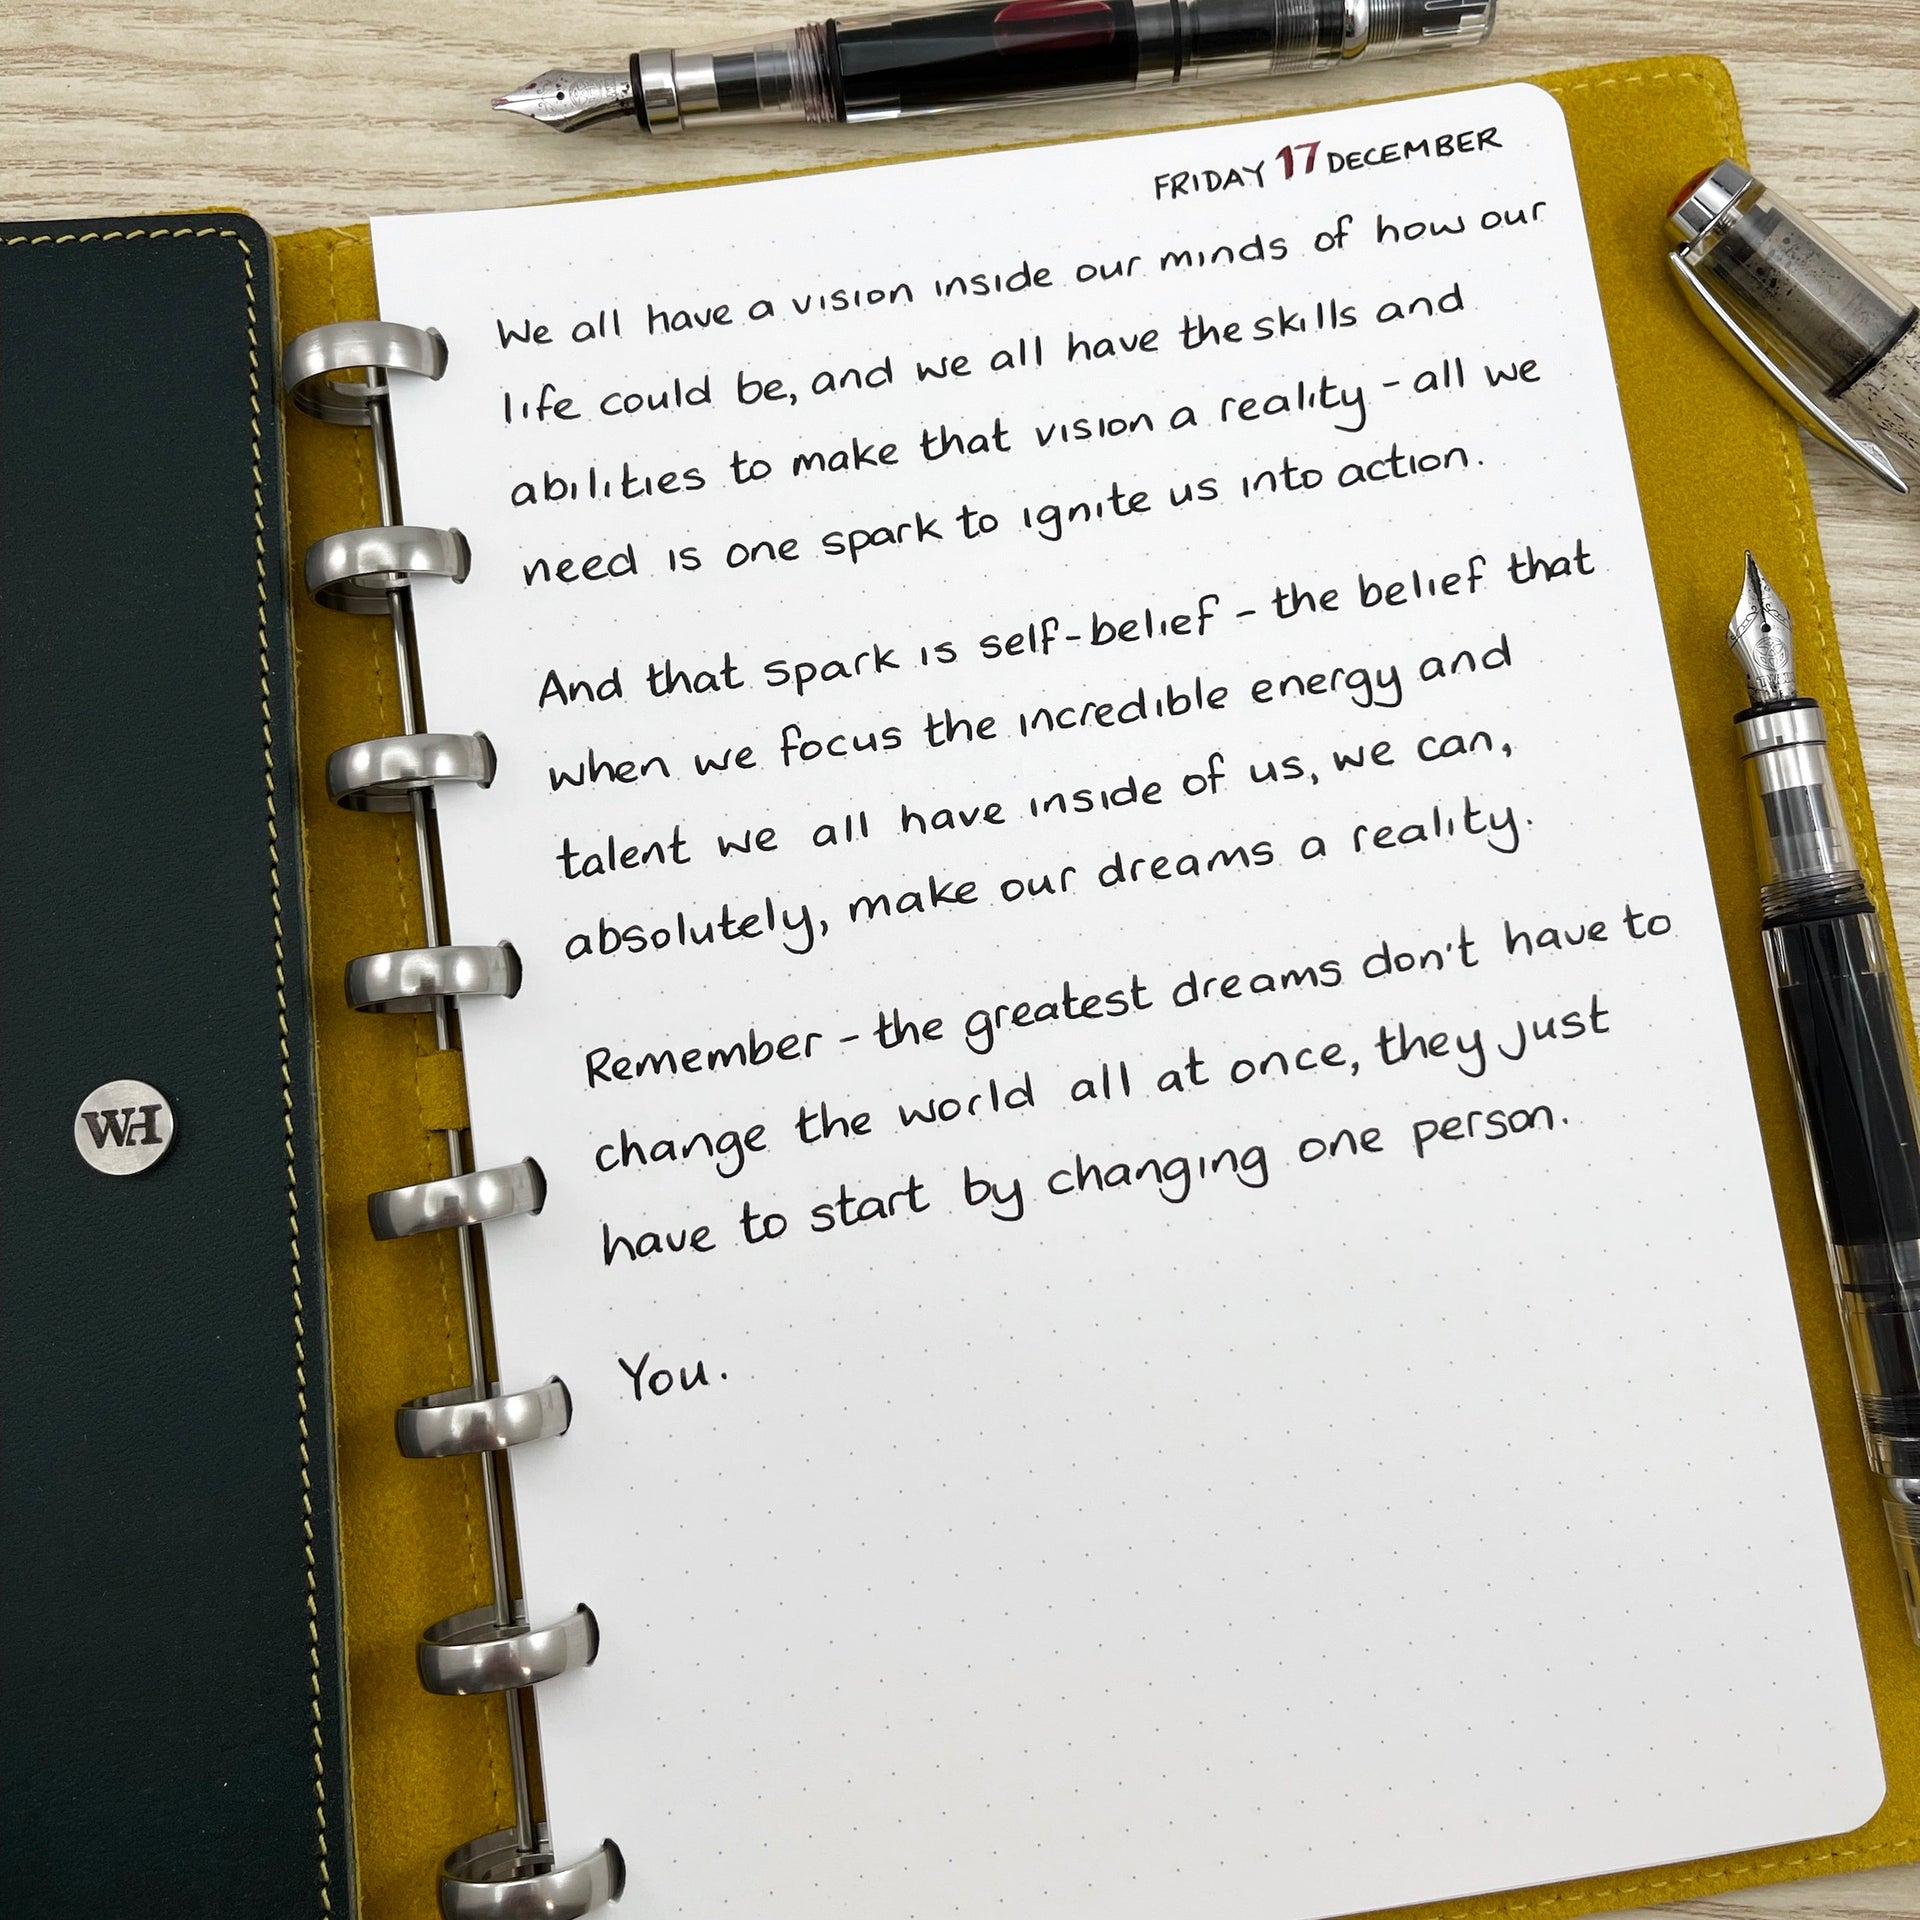 FRIDAY 17 DECEMBER
We all have a vision inside our minds of how our
life could be, and we all have the skills and
abilities to make that vision a reality - all we
need is one spark to ignite us into action.
And that spark is self-belief - the belief that
when we focus the incredible energy and
talent we all have inside of us, we can,
absolutely, make our dreams a reality.
Remember - the greatest dreams don't have to
change the world all at once, they just
have to start by changing one person.
You.
WH